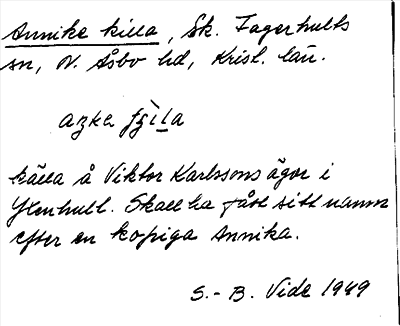 Annike killa, Sk. Fagerhults
sn, N. Åsbo hd, Krist. län.
källa å Viktor Karlssons ägor i
Ylenhult. Skall ha fått sitt namn
efter en kopiga Annika.
S.-B. Vide 1949